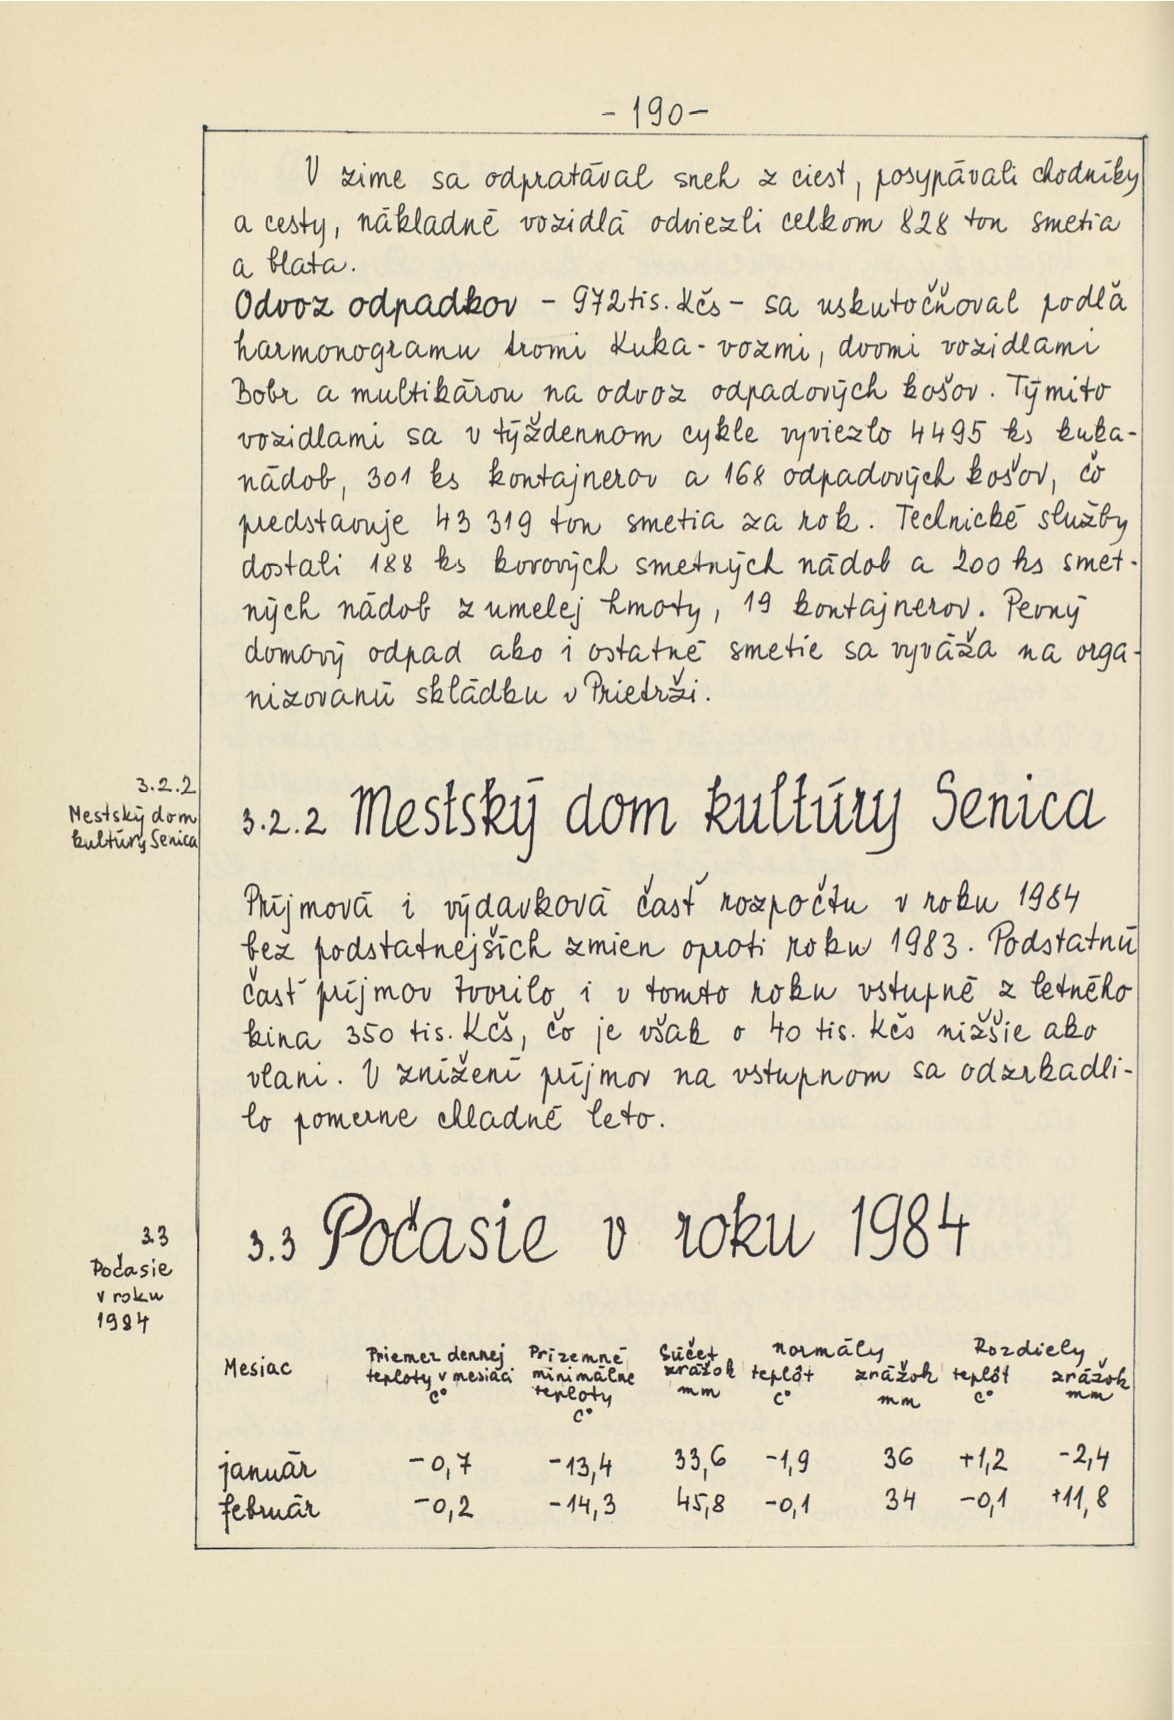 - 190 -
V zime sa odpratával sneh z ciest, posypávali chodníky
a cesty, nákladné vozidlá odviezli celkom 828 ton smetia
a blata.
Odvoz odpadkov - 972 tis. Kčs - sa uskutočňoval podľa
harmonogramu tromi Kuka-vozmi, dvomi vozidlami
Bobr a multikárou na odvoz odpadových košov. Týmito
vozidlami sa v týždennom cykle vyviezlo 4495 ks kuka-
nádob, 301 ks kontajnerov a 168 odpadových košov, čo
predstavuje 43 319 ton smetia za rok. Technické služby
dostali 188 ks kovových smetných nádob a 200 ks smet-
ných nádob z umelej hmoty, 19 kontajnerov. Pevný
domový odpad ako i ostatné smetie sa vyváža na orga-
nizovanú skládku v Prietrži.
3.2.2
Mestský dom
kultúry Senica
3.2.2 Mestský dom kultúry Senica
Príjmová i výdavková časť rozpočtu v roku 1984
bez podstatnejších zmien oproti roku 1983. Podstatnú
časť príjmov tvorilo i v tomto roku vstupné z letného
kina 350 tis. Kčs, čo je však o 40 tis. Kčs nižšie ako
vlani. V znížení príjmov na vstupnom sa odzrkadli-
lo pomerne chladné leto.
3.3
Počasie
v roku
1984
3.3 Počasie v roku 1984
Mesiac Priemer dennej teploty v mesiaci C° Prízemné minimálne teploty C° Súčet zrážok mm normály teplôt C° zrážok mm Rozdiely teplôt C° zrážok mm
január -0,7 -13,4 33,6 -1,9 36 +1,2 -2,4
február -0,2 -14,3 45,8 -0,1 34 -0,1 +11,8